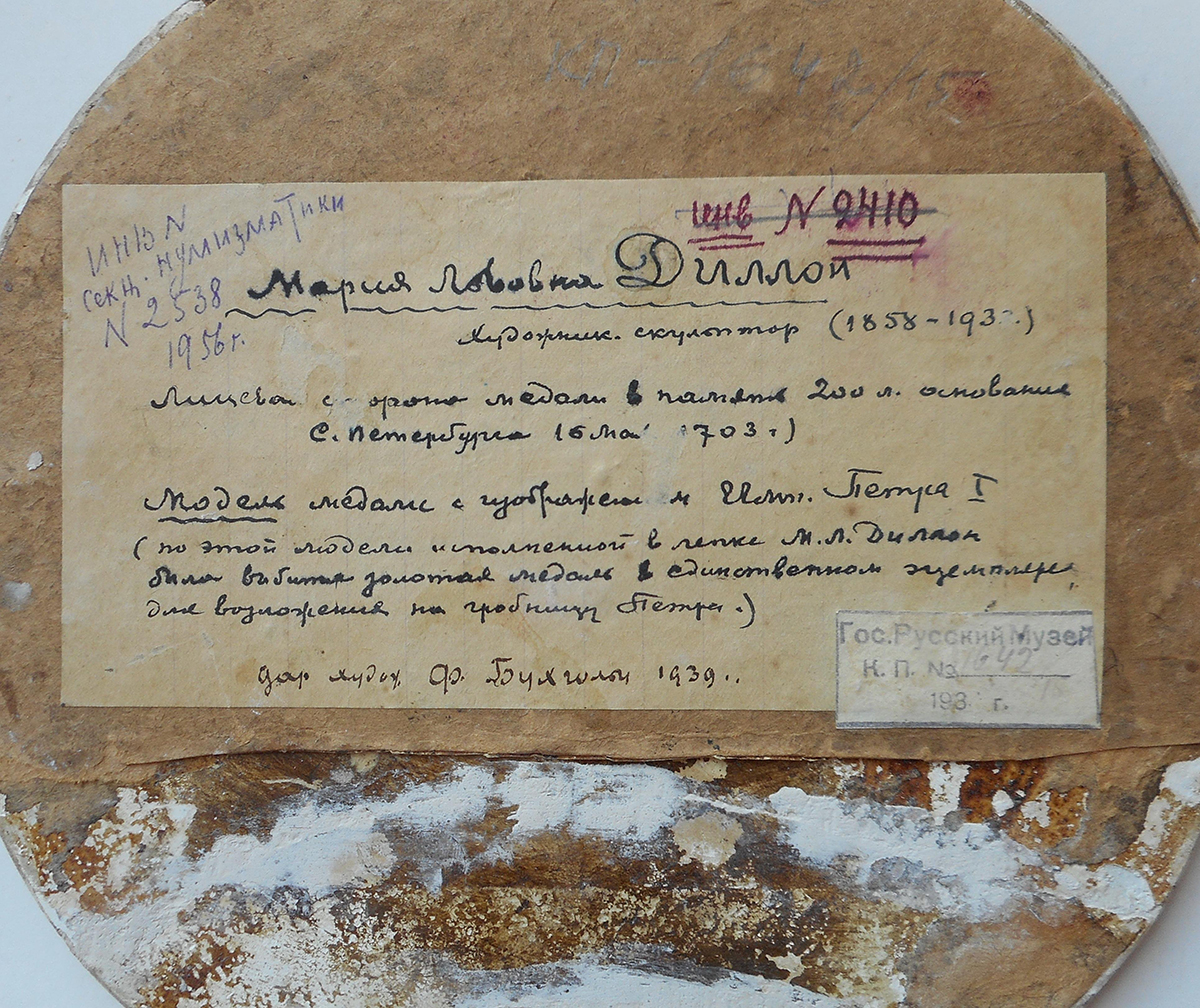 КП-1642/15
инв N 2410
ИНВ N
секц. нумизматики
N 2538
1956 г.
Мария Львовна Диллон
Художник. скульптор (1858-193
Лицевая сторона медали в память 200 л. основания
С. Петербурга 16 мая 1703 г)
Модель медали с изображением Имп. Петра I
(по этой модели исполненной в лепке М.Л. Диллон
была выбита золотая медаль в единственном экземпляре,
для возложения на гробницу Петра.)
дар худож Ф. Бухгольц 1939..
Гос. Русский Музей
К. П. № 1642
193 г.